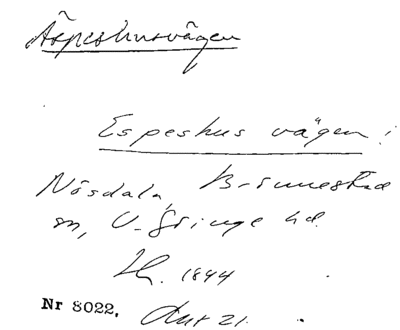 Äspeshusvägen
Espeshus vägen!
Nösdala, Brönnestad
sn, V. Göinge hd.
Lk. 1844
Nr 8022, Akt 21.